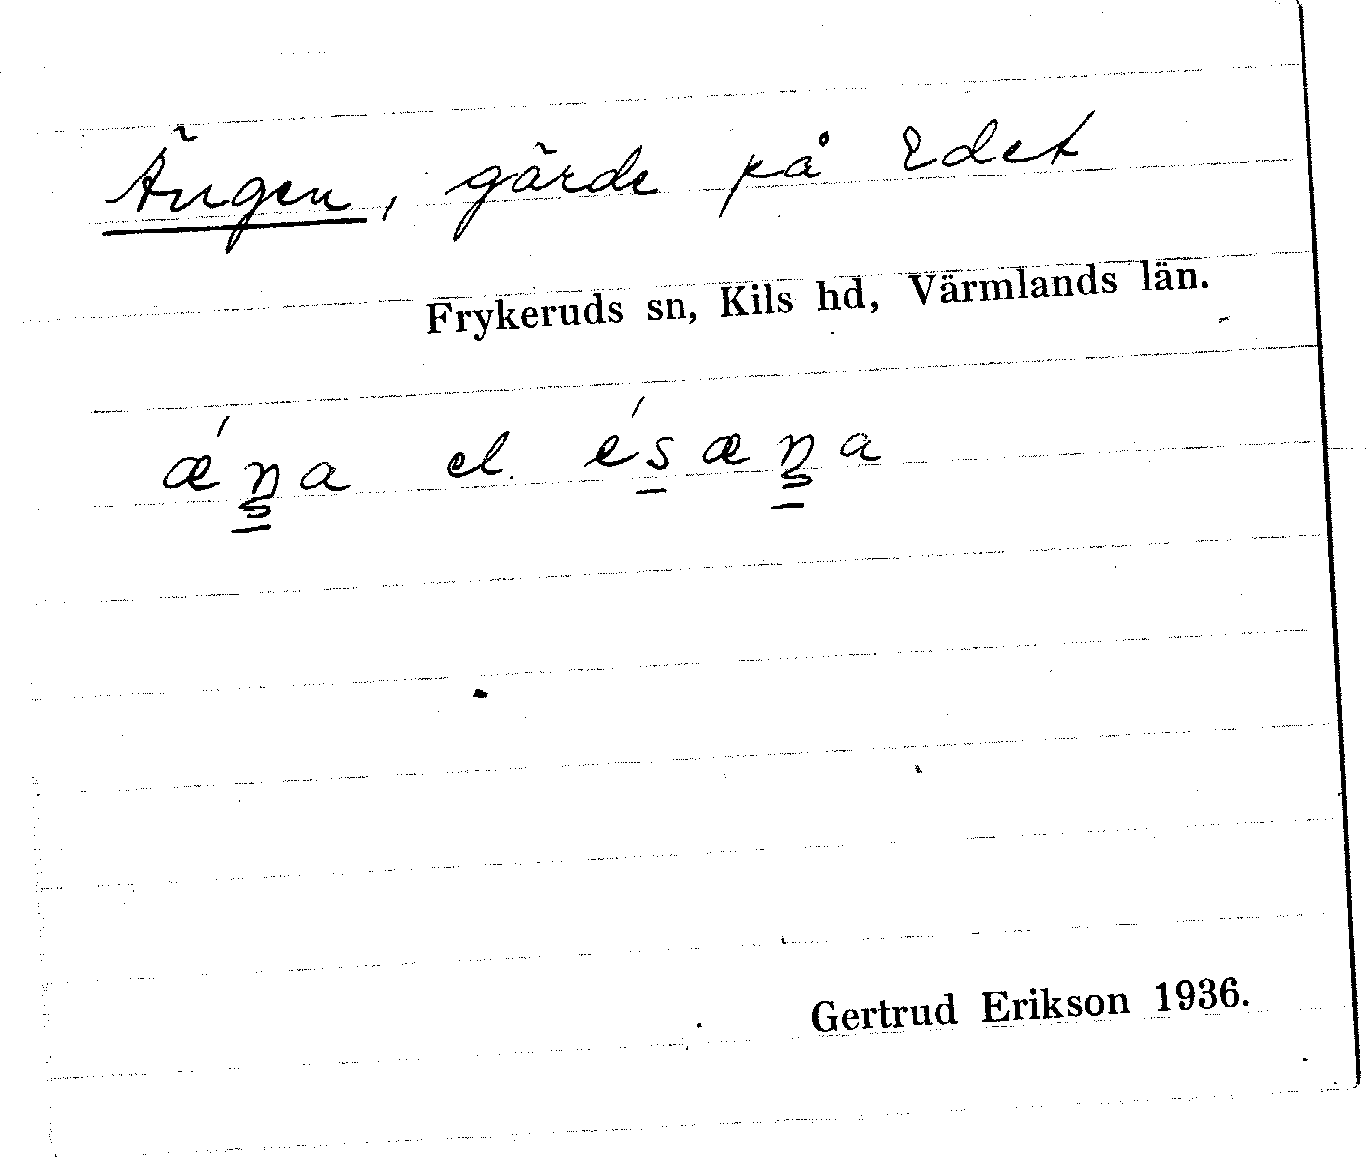 Ängen, gärde på Edet
Frykeruds sn, Kils hd, Värmlands län.
ǽŋa el. ésæŋa
Gertrud Erikson 1936.